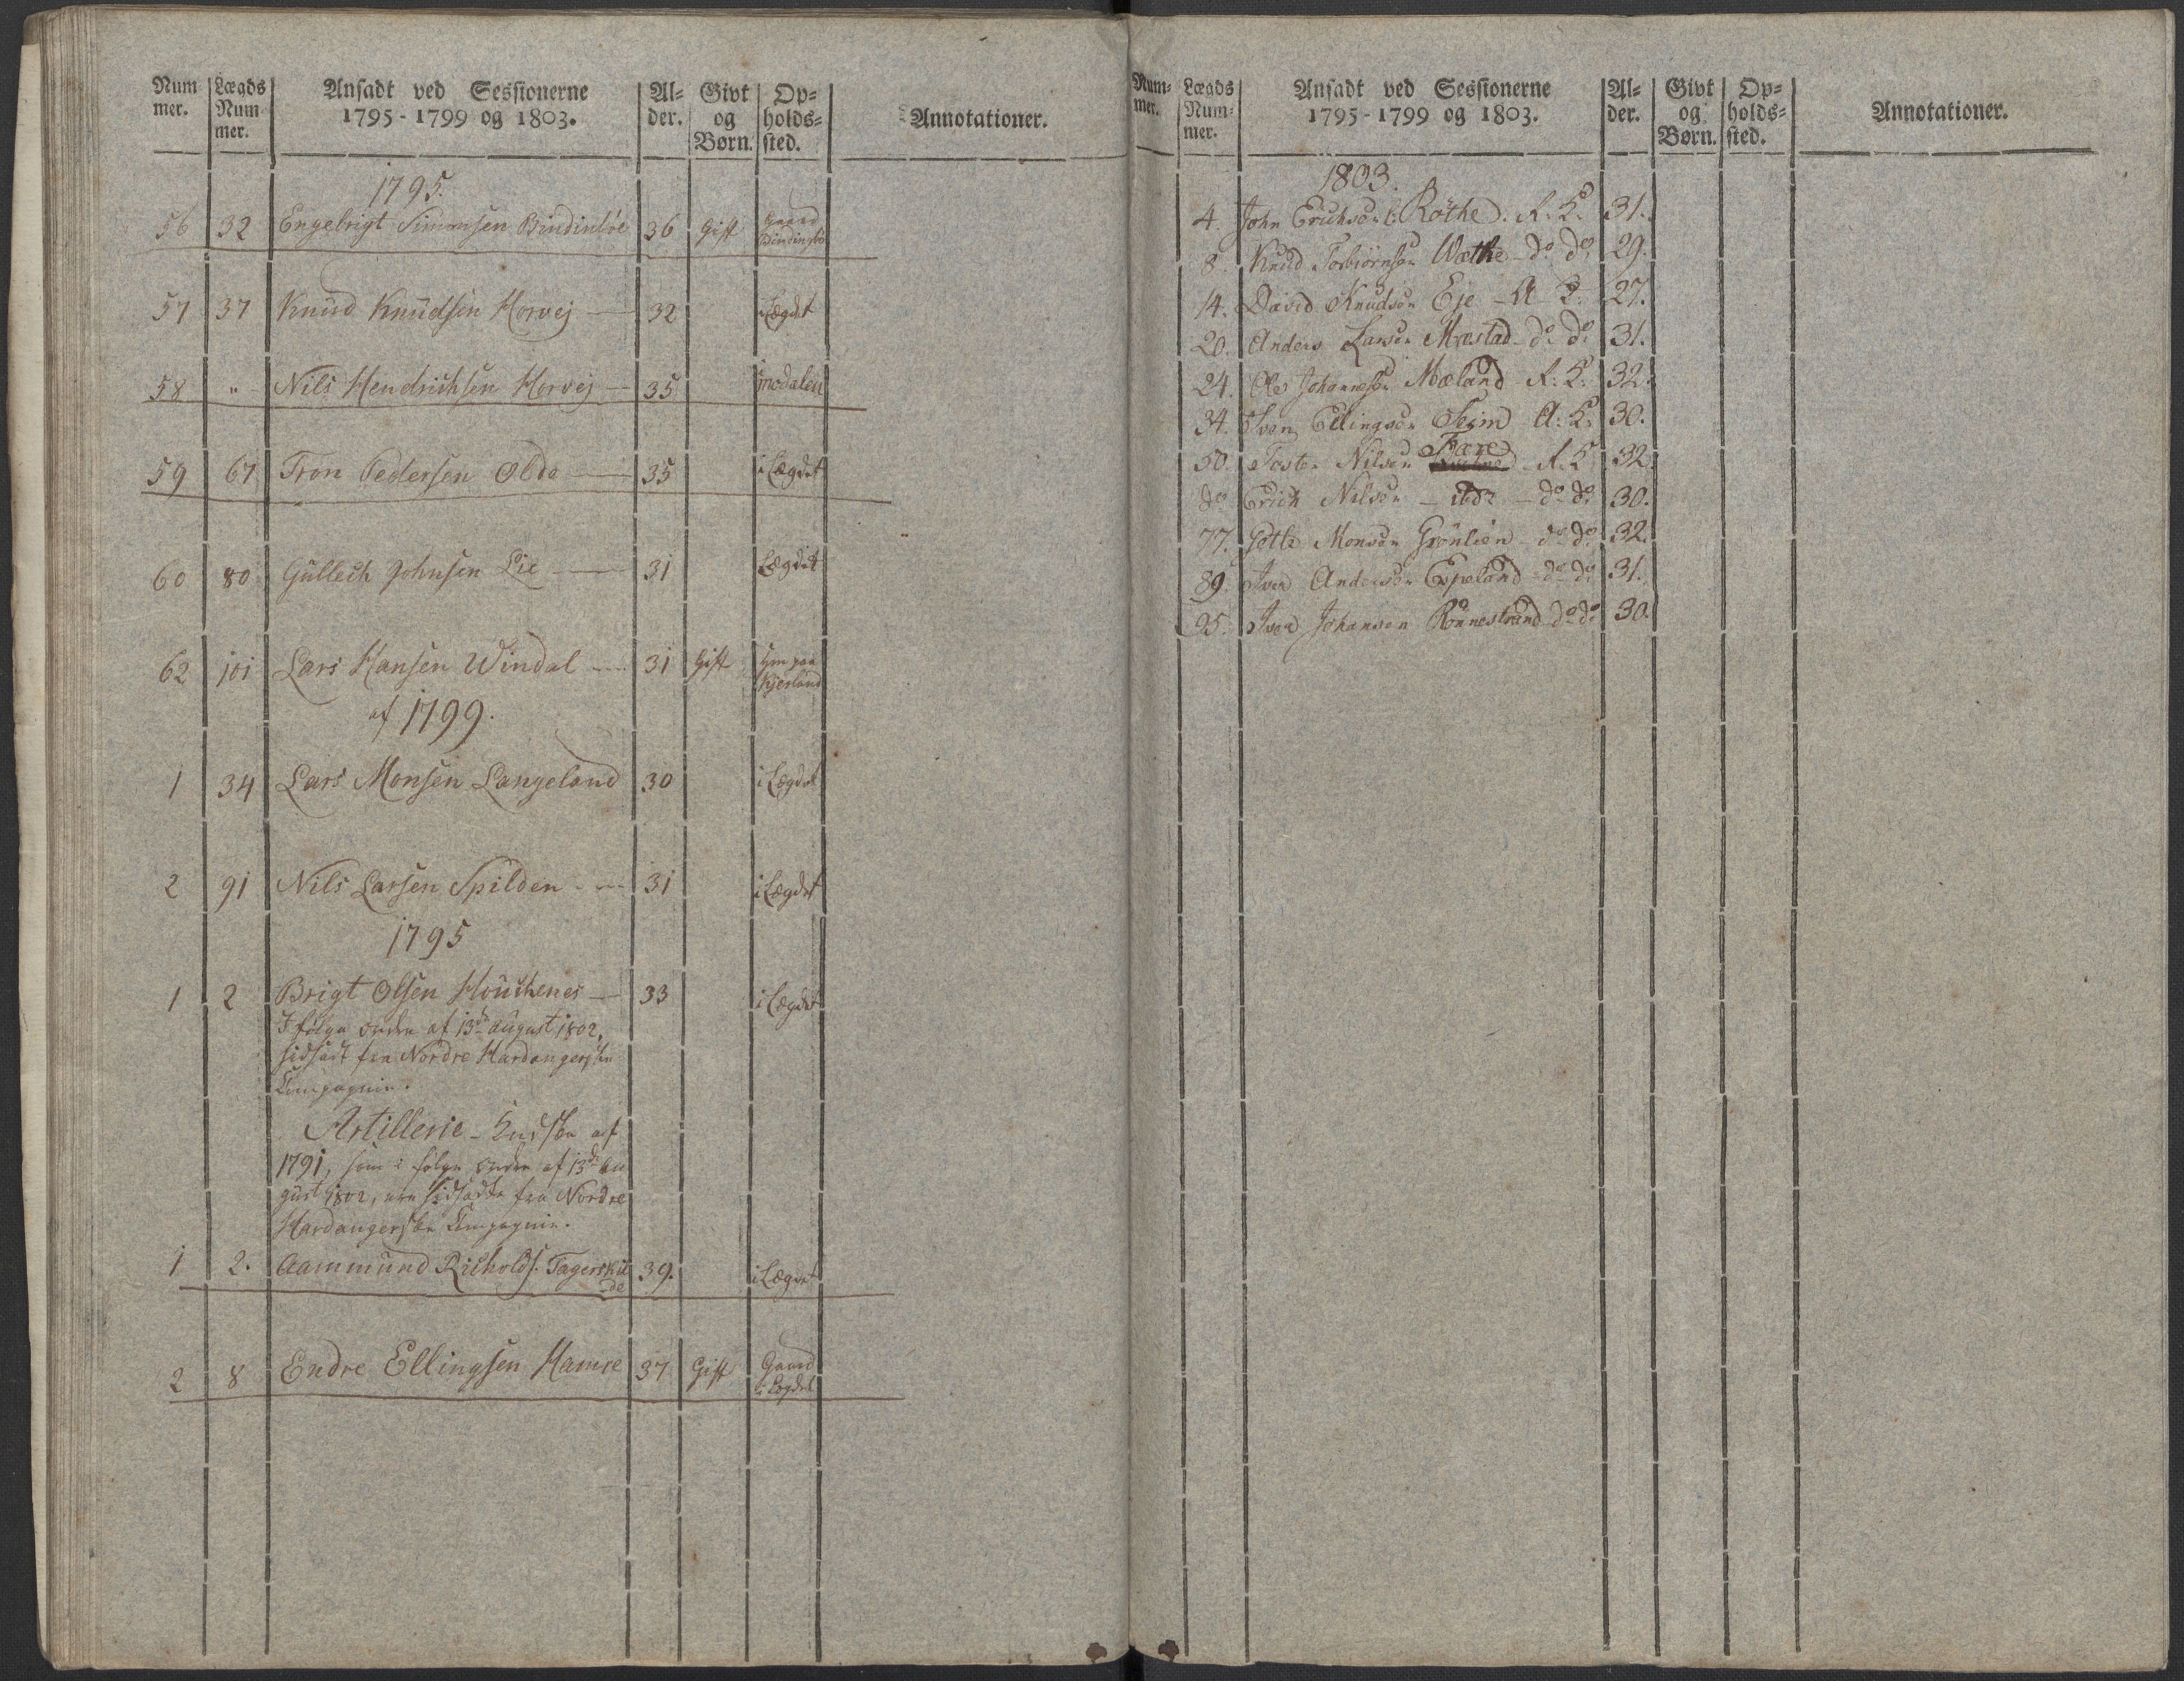 Num Lægds Ansadt ved Sessionerne Al= Givt Op=
mer. Num 1795 - 1799 og 1803. der. og holds= Annotationer.
mer. Børn. sted.
1795.
56 32 Engelbrigt Simonsen Bindinbøe 36 Gift Gaard
Bindingbø
57 37 Knud Knudsen Horvej 32 i Lægdet
58 " Nils Hendrichsen Horvej 35 modalen
59 67 Tron Pedersen Olde 35 i Lægdet
60 80 Gullech Johnsen Lie 31 Lægdet
62 101 Lars Hansen Windal 31 Gift
Kjerland
af 1799.
1 34 Lars Monsen Langeland 30 i Lægdet
2 91 Nils Larsen Spilden 31 i Lægdet
1795
1 2 Brigt Olsen Houchenes 33 i Lægdet
I følge Ordre af 13de August 1802,
hidsadt fra Nordre Hardangerske
Compagnie.
Artillerie af
1791, som i følge Ordre af 13de Au
gust 1802, ere hidsadte fra Nordre
Hardangerske Compagnie.
1 2. Aammund Richolds. Tagerskil 39. i Lægdet
de
2 8 Endre Ellingsen Hamre 37 Gift Gaard
i Lægdet
Num= Lægds Ansadt ved Sessionerne Al= Givt Op=
mer. Num= 1795 - 1799 og 1803. der. og holds= Annotationer.
mer. Børn. sted.
1803.
4. John Erichsen Røthe. R: K. 31.
8. Knud Torbiørnsen Wæthe do do 29.
14. David Knudsen Eje A K. 27.
20. Anders Larsen Mæstad do do 31.
24. Ole Johannessen Mæland R: K: 32.
34. Sven Ellingsen Seim A: K: 30.
Fære
50. Toster Nilsen R: K 32.
do Erich Nilsen ibdm do do 30.
77. Giøtle Monsen Grønlien do do 32.
89. Iver Andersen Espeland do do 31.
95. Iver Johansen Rønnestrand do do 30.